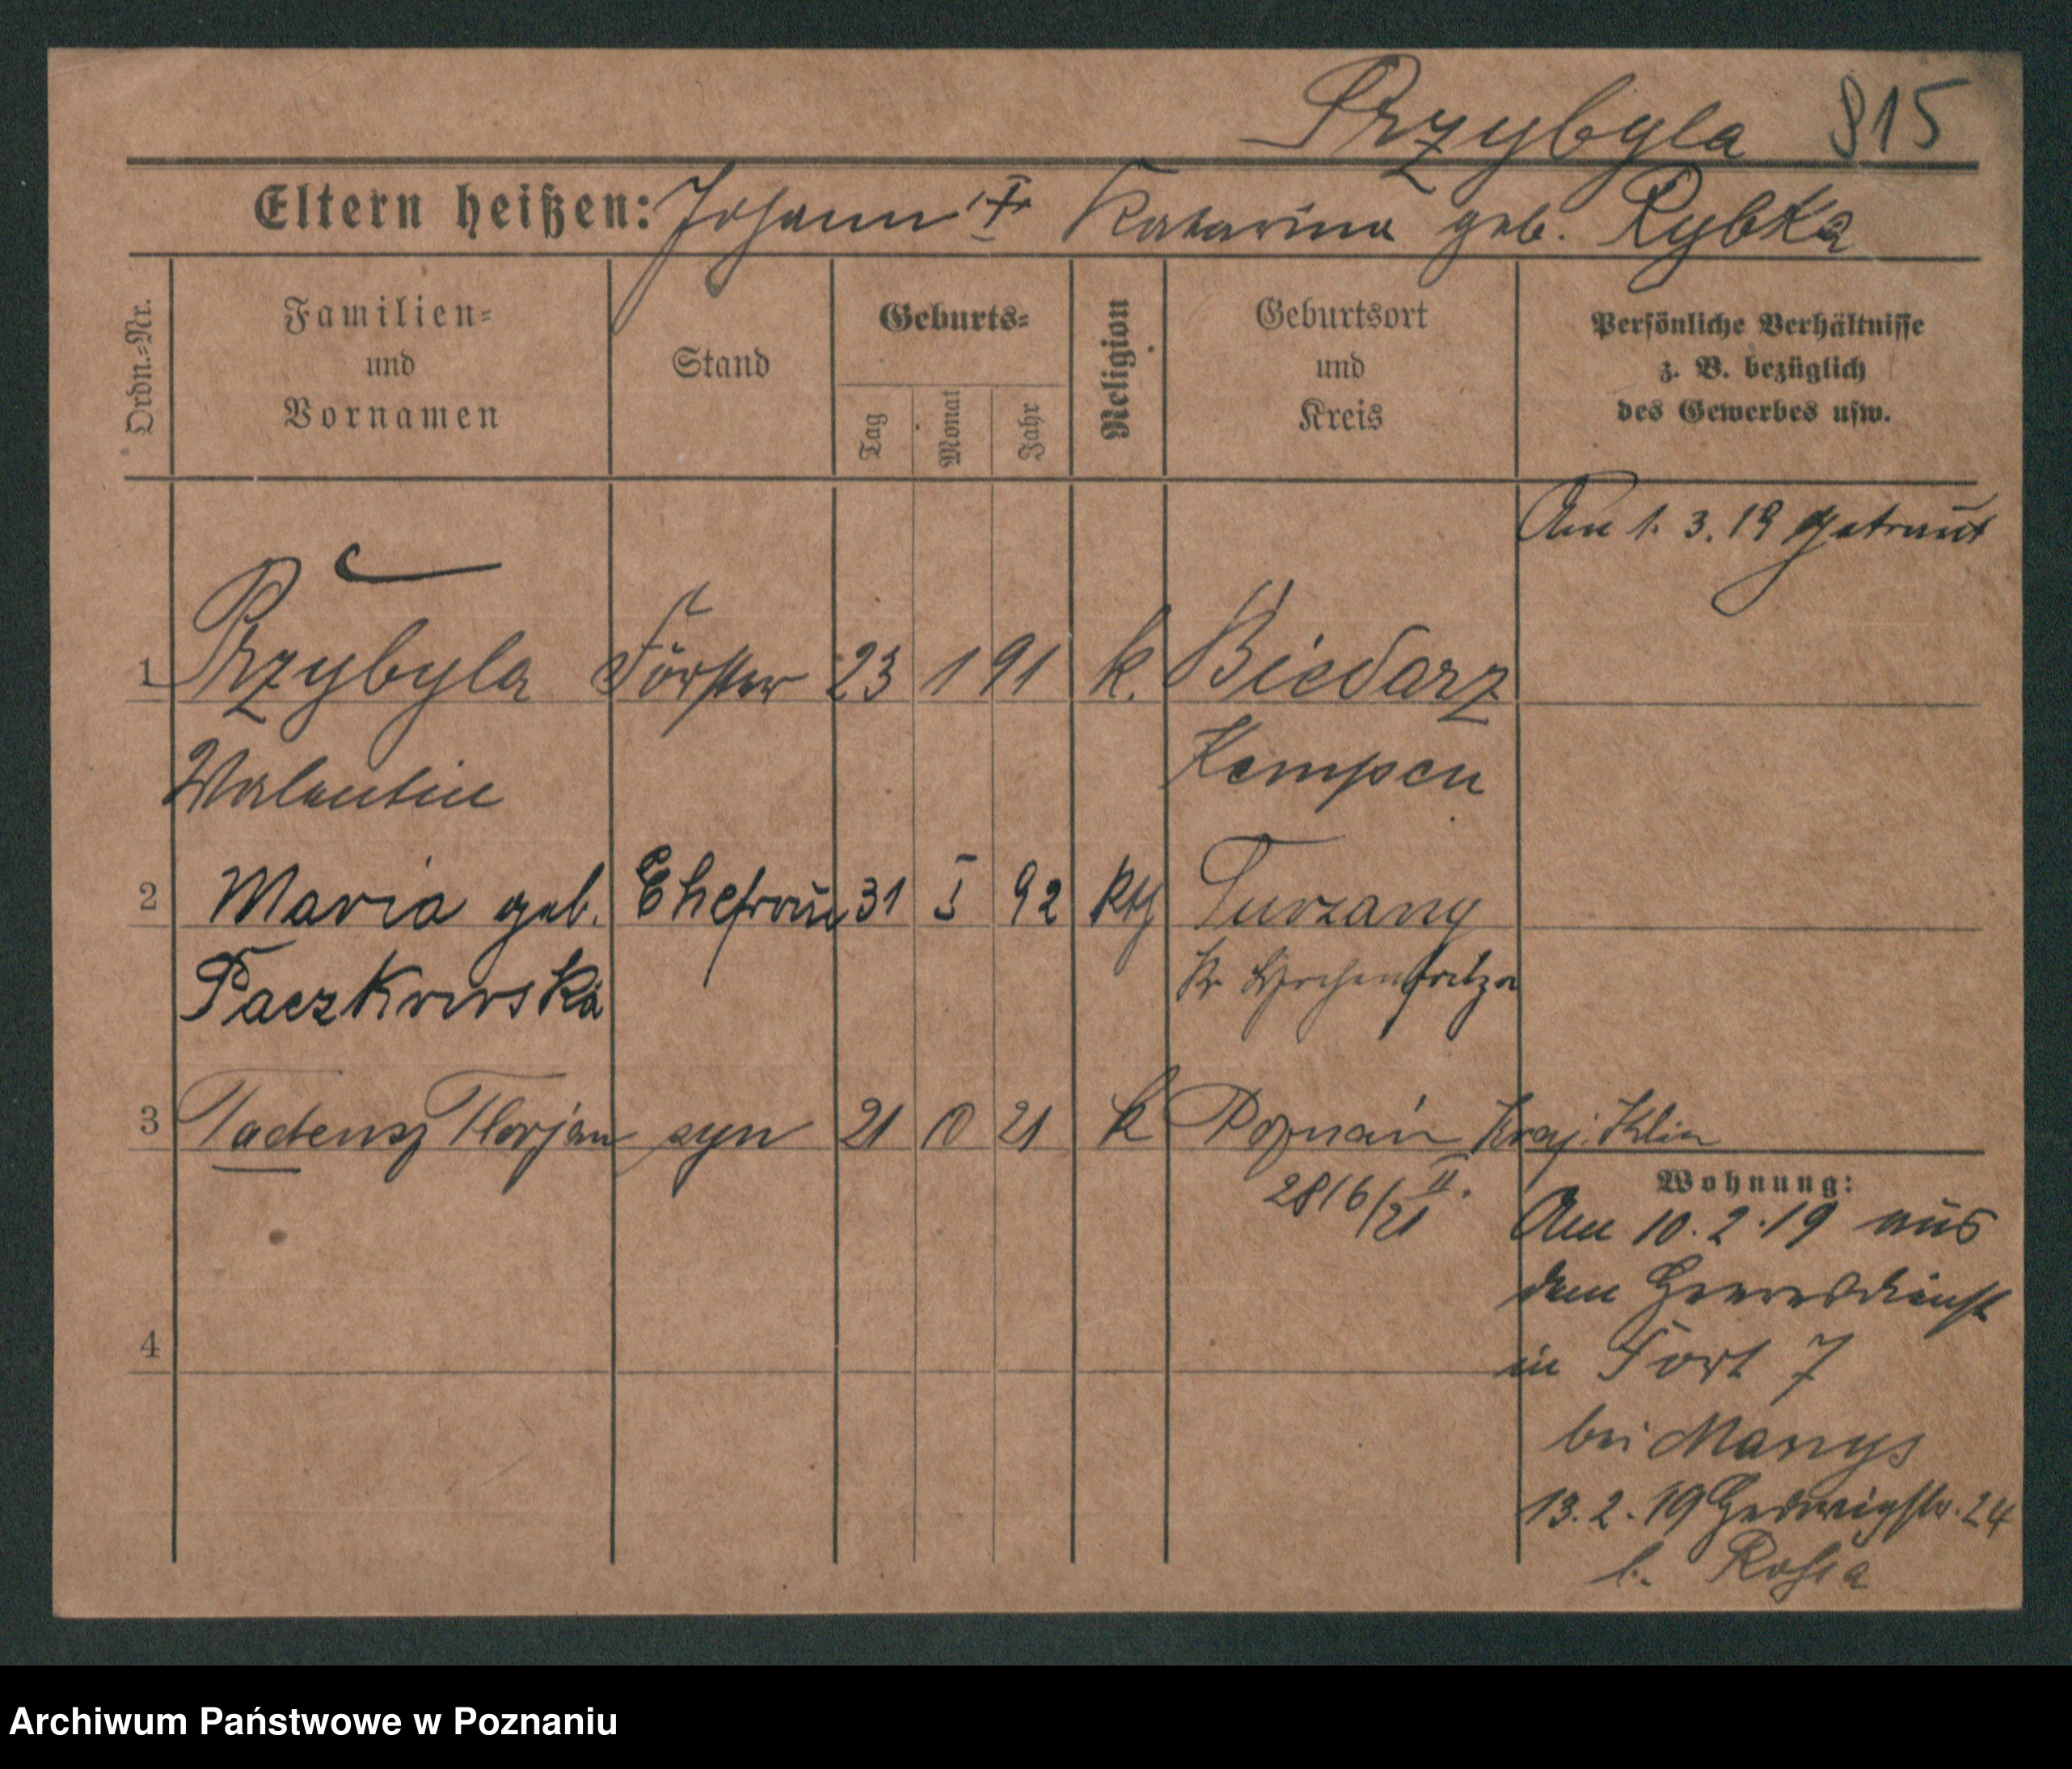 Przybyla 815
Eltern heißen: Johann † Katarina geb. Rybka
Ordn.-Nr.
Familien-
und
Vornamen
Stand
Geburts-
Tag
Monat
Jahr
Religion
Geburtsort
und
Kreis
Persönliche Verhältnisse
z. B. bezüglich
des Gewerbes usw.
Am 1. 3. 19 getraut
1 Przybyla Förster 23 1 91 k. Biedarz
Valentin Kempen
2 Maria geb. Ehefrau 31 I 92 kth Turzany
Paczkowska Kr
3 Tadeusz Florjan syn 21 10 21 k Poznań Kraj. Klin
2816/21 II.
Wohnung:
Am 10. 2. 19 aus
dem Heeresdienst
4
in Fort 7
bei
13. 2. 19 Hedwigstr. 24
b.
Archiwum Państwowe w Poznaniu